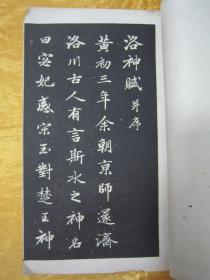 洛神賦并序
黃初三年余朝京師還濟
洛川古人有言斯水之神名
曰宓妃感宋玉對楚王神